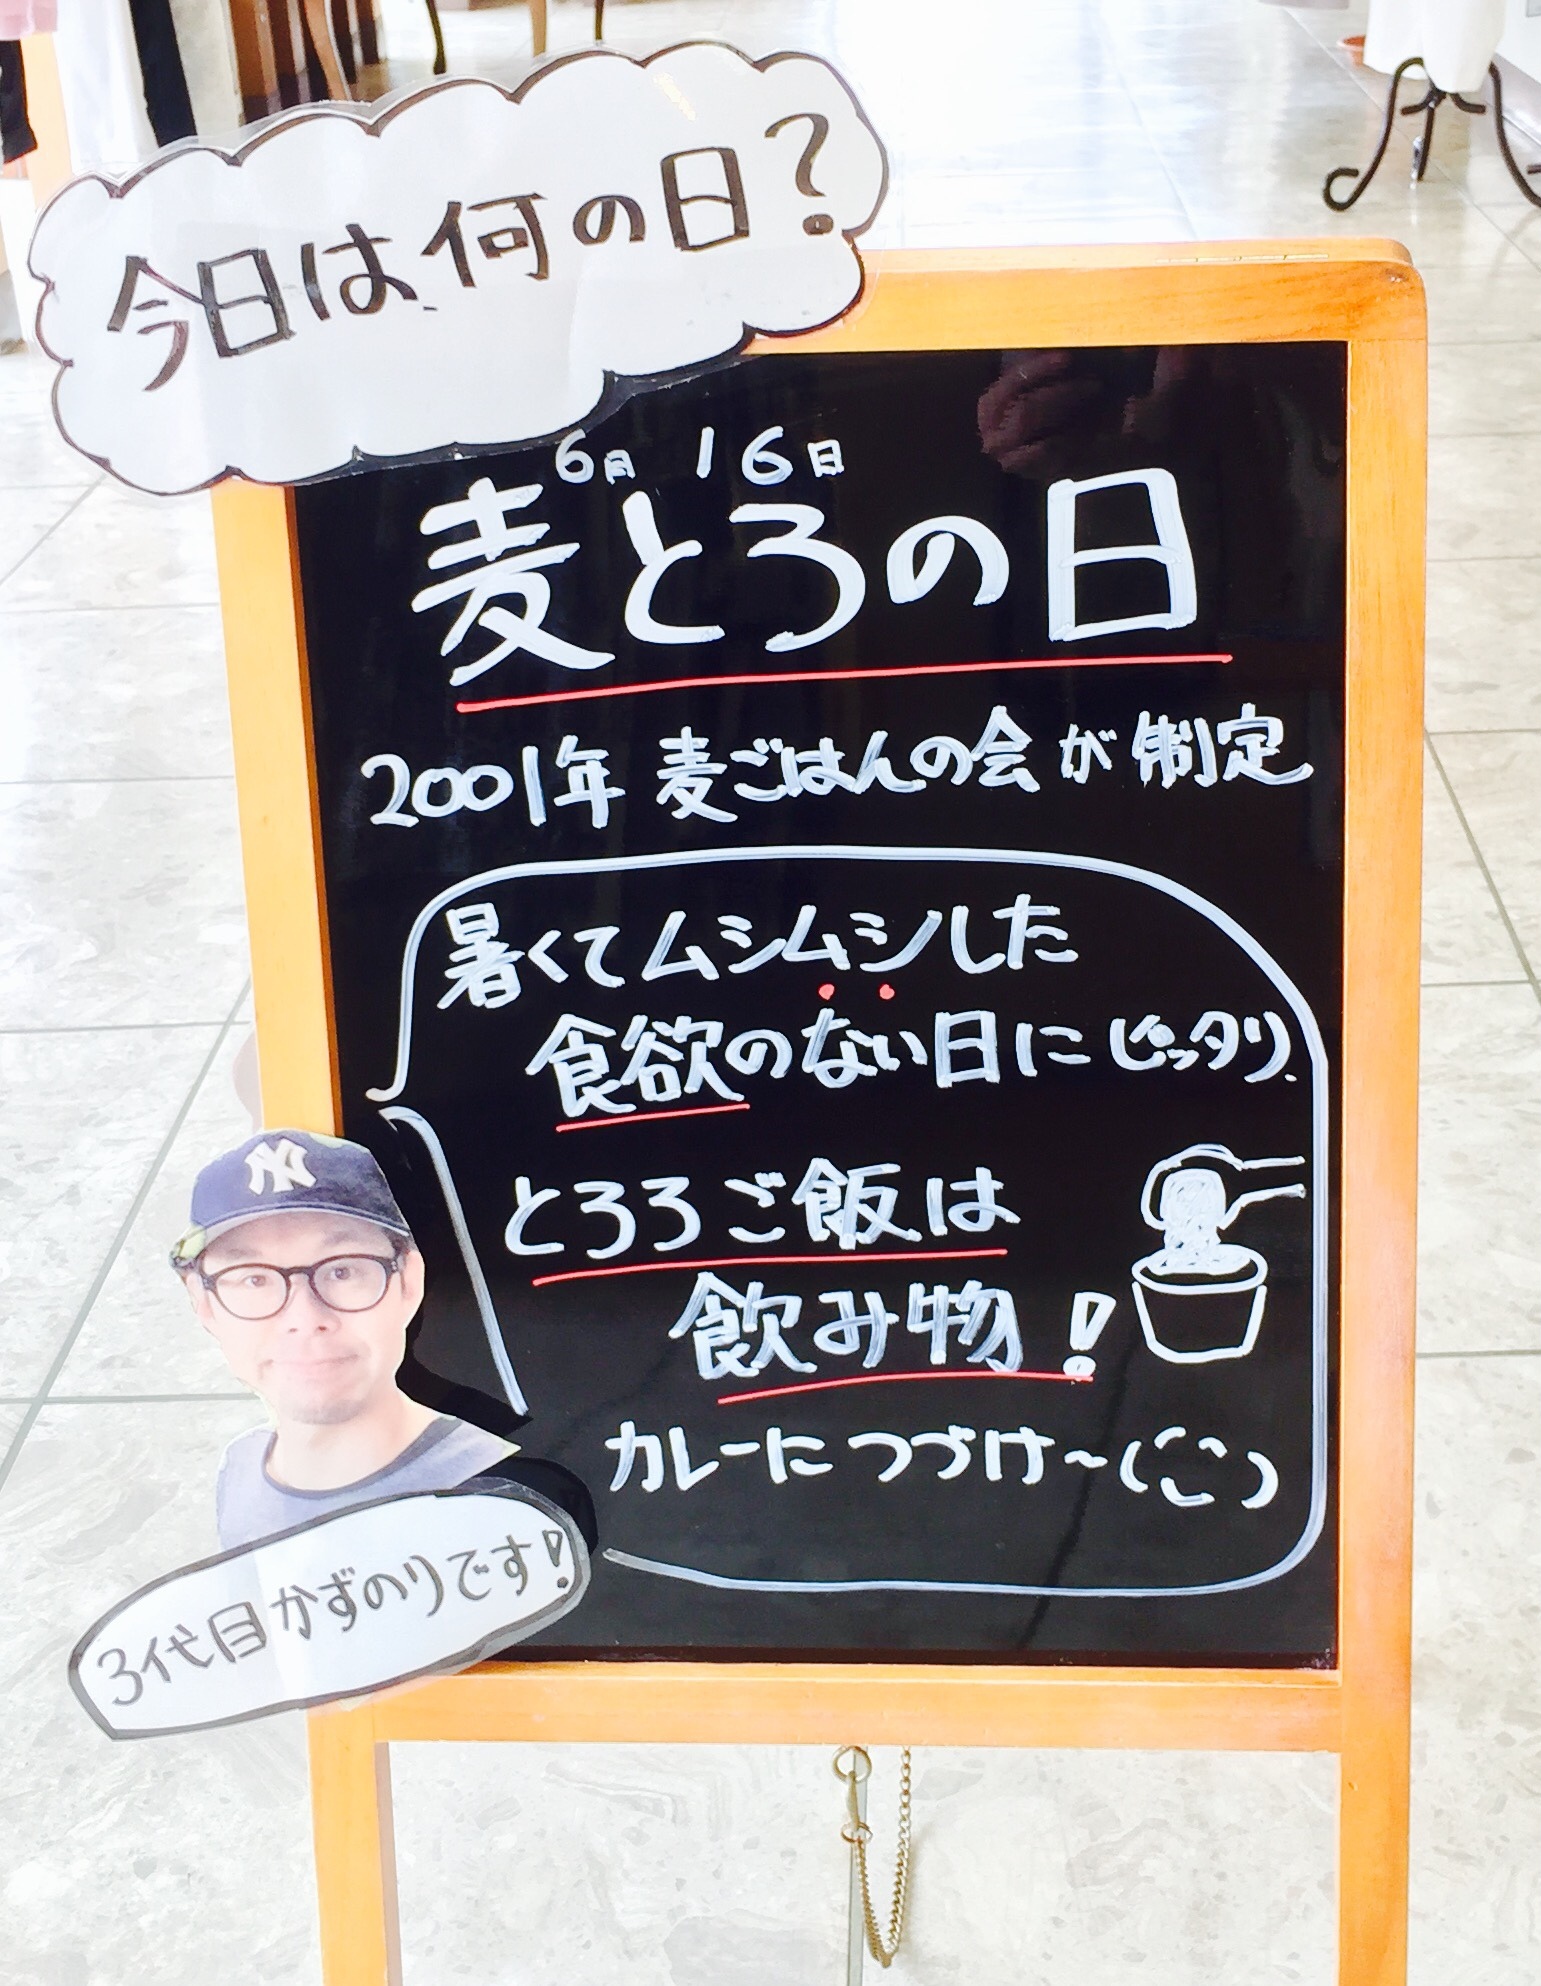 今日は何の日?
6月16日
麦とろの日
2001年 麦ごはんの会が制定
暑くてムシムシした
食欲のない日にピッタリ.
とろろご飯は
飲み物!
カレーにつづけ〜
NY
3代目かずのりです!